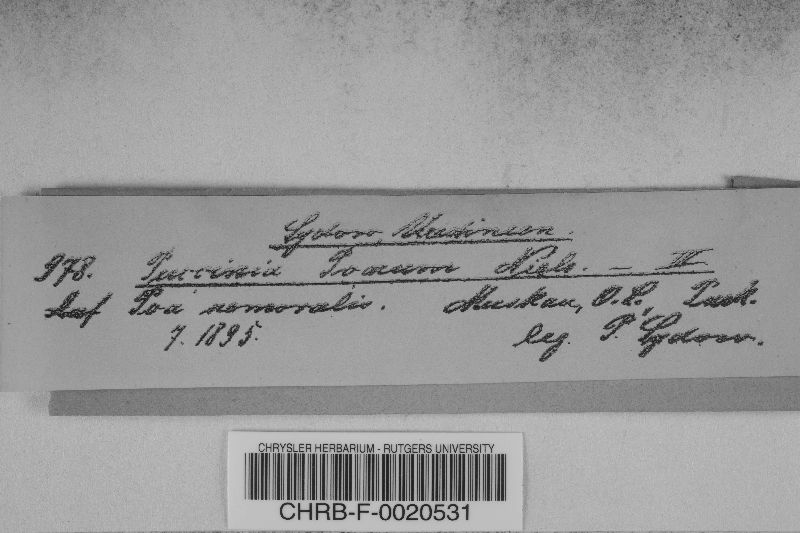 Sydow, Uredineen.
978. Puccinia Poarum Niels. – III
Auf Poa nemoralis. Muskau, O.L., Park.
7. 1895. leg. P. Sydow.
CHRYSLER HERBARIUM - RUTGERS UNIVERSITY
CHRB-F-0020531